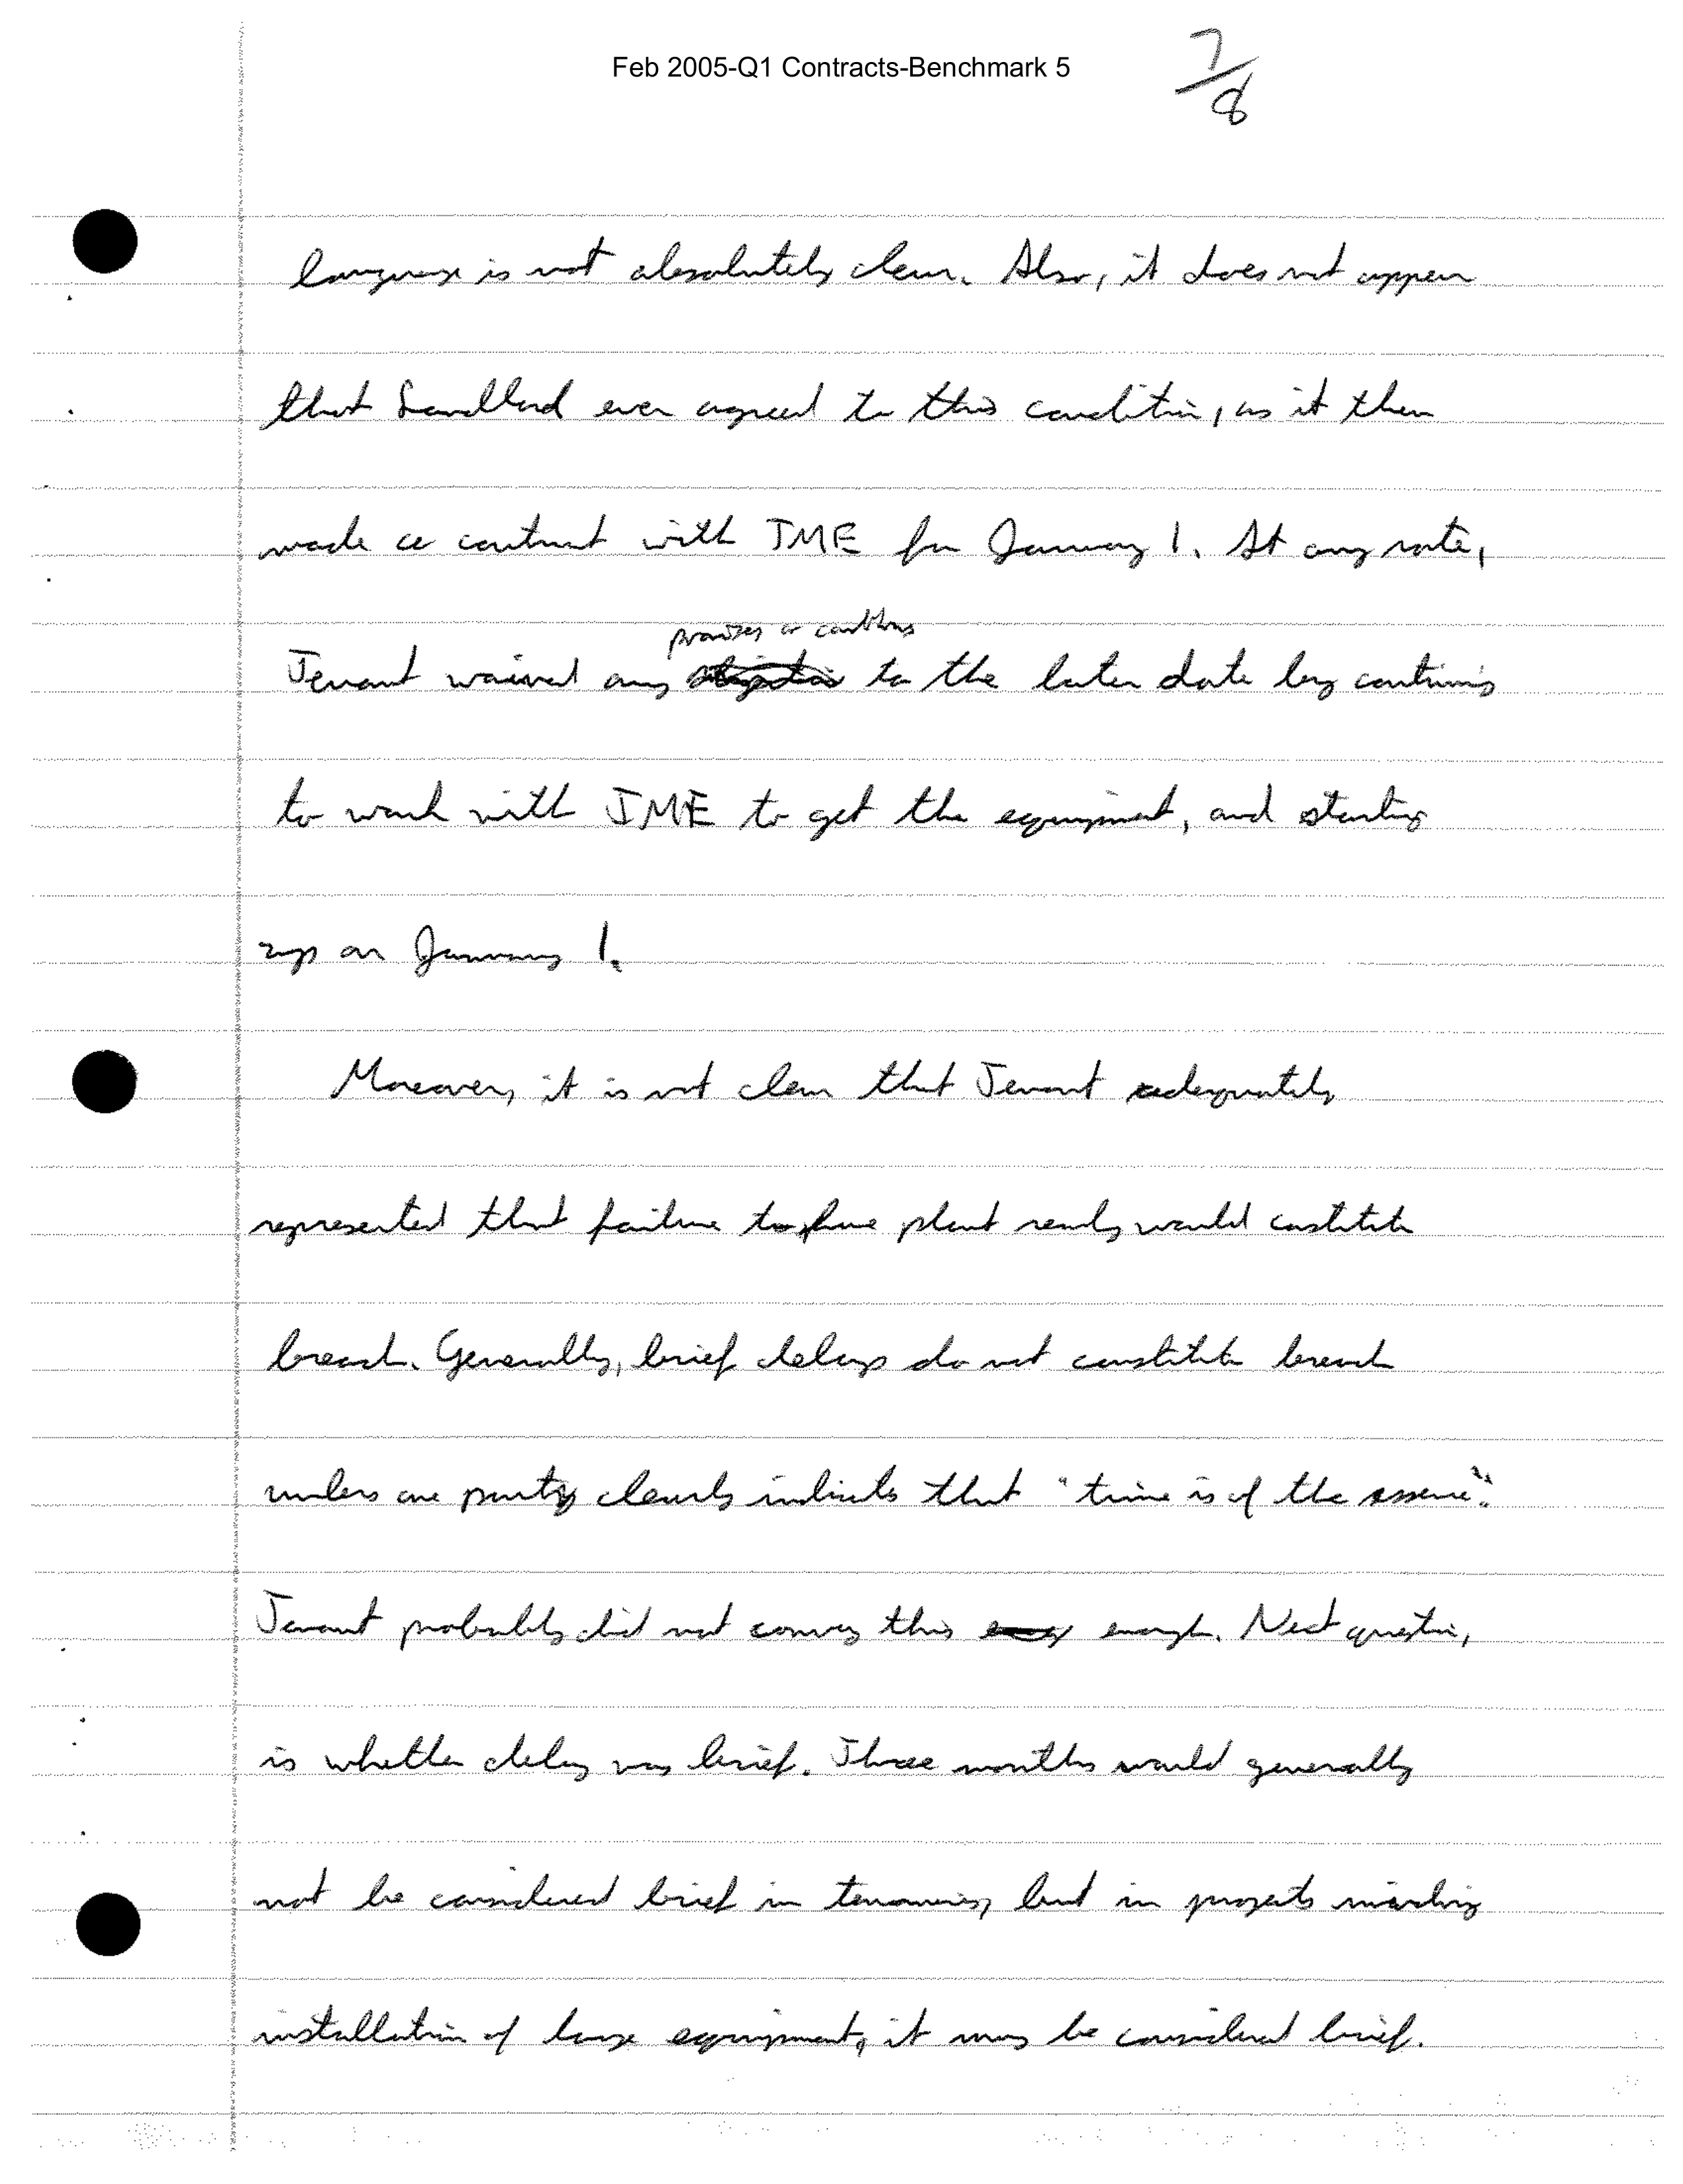 Feb 2005-Q1 Contracts-Benchmark 5
7/8
language is not absolutely clear. Also, it does not appear
that Landlord ever agreed to this condition, as it then
made a contract with TME for January 1. At any rate,
promises or conditions
Tenant waived any to the later date by continuing
to work with TME to get the equipment, and starting
up on January 1.
Moreover, it is not clear that Tenant adequately
represented that failure to have plant ready would constitute
breach. Generally, brief delays do not constitute breach
unless one party clearly indicates that "time is of the essence".
Tenant probably did not convey this enough. Next question,
is whether delay was brief. Three months would generally
not be considered brief in tenancies, but in projects involving
installation of large equipment, it may be considered brief.